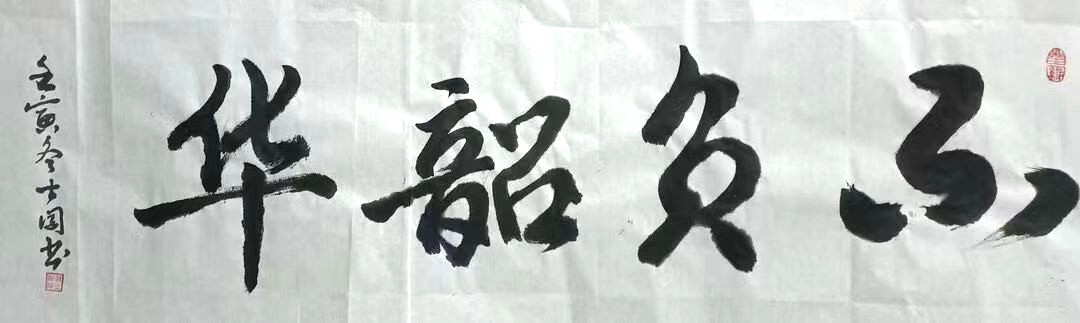 不负韶华
壬寅冬士国书